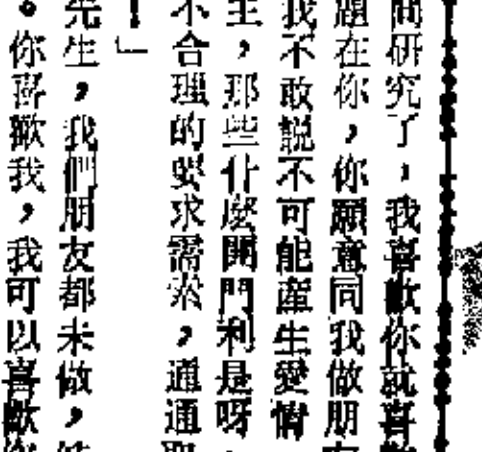 間研究了,我喜歡你就喜歡
題在你,你願意同我做朋友
我不敢說不可能產生愛情
主,那些什麼開門利是呀,
不合理的要求需索,通通取
!」
先生,我們朋友都未做,
。你喜歡我,我可以喜歡你